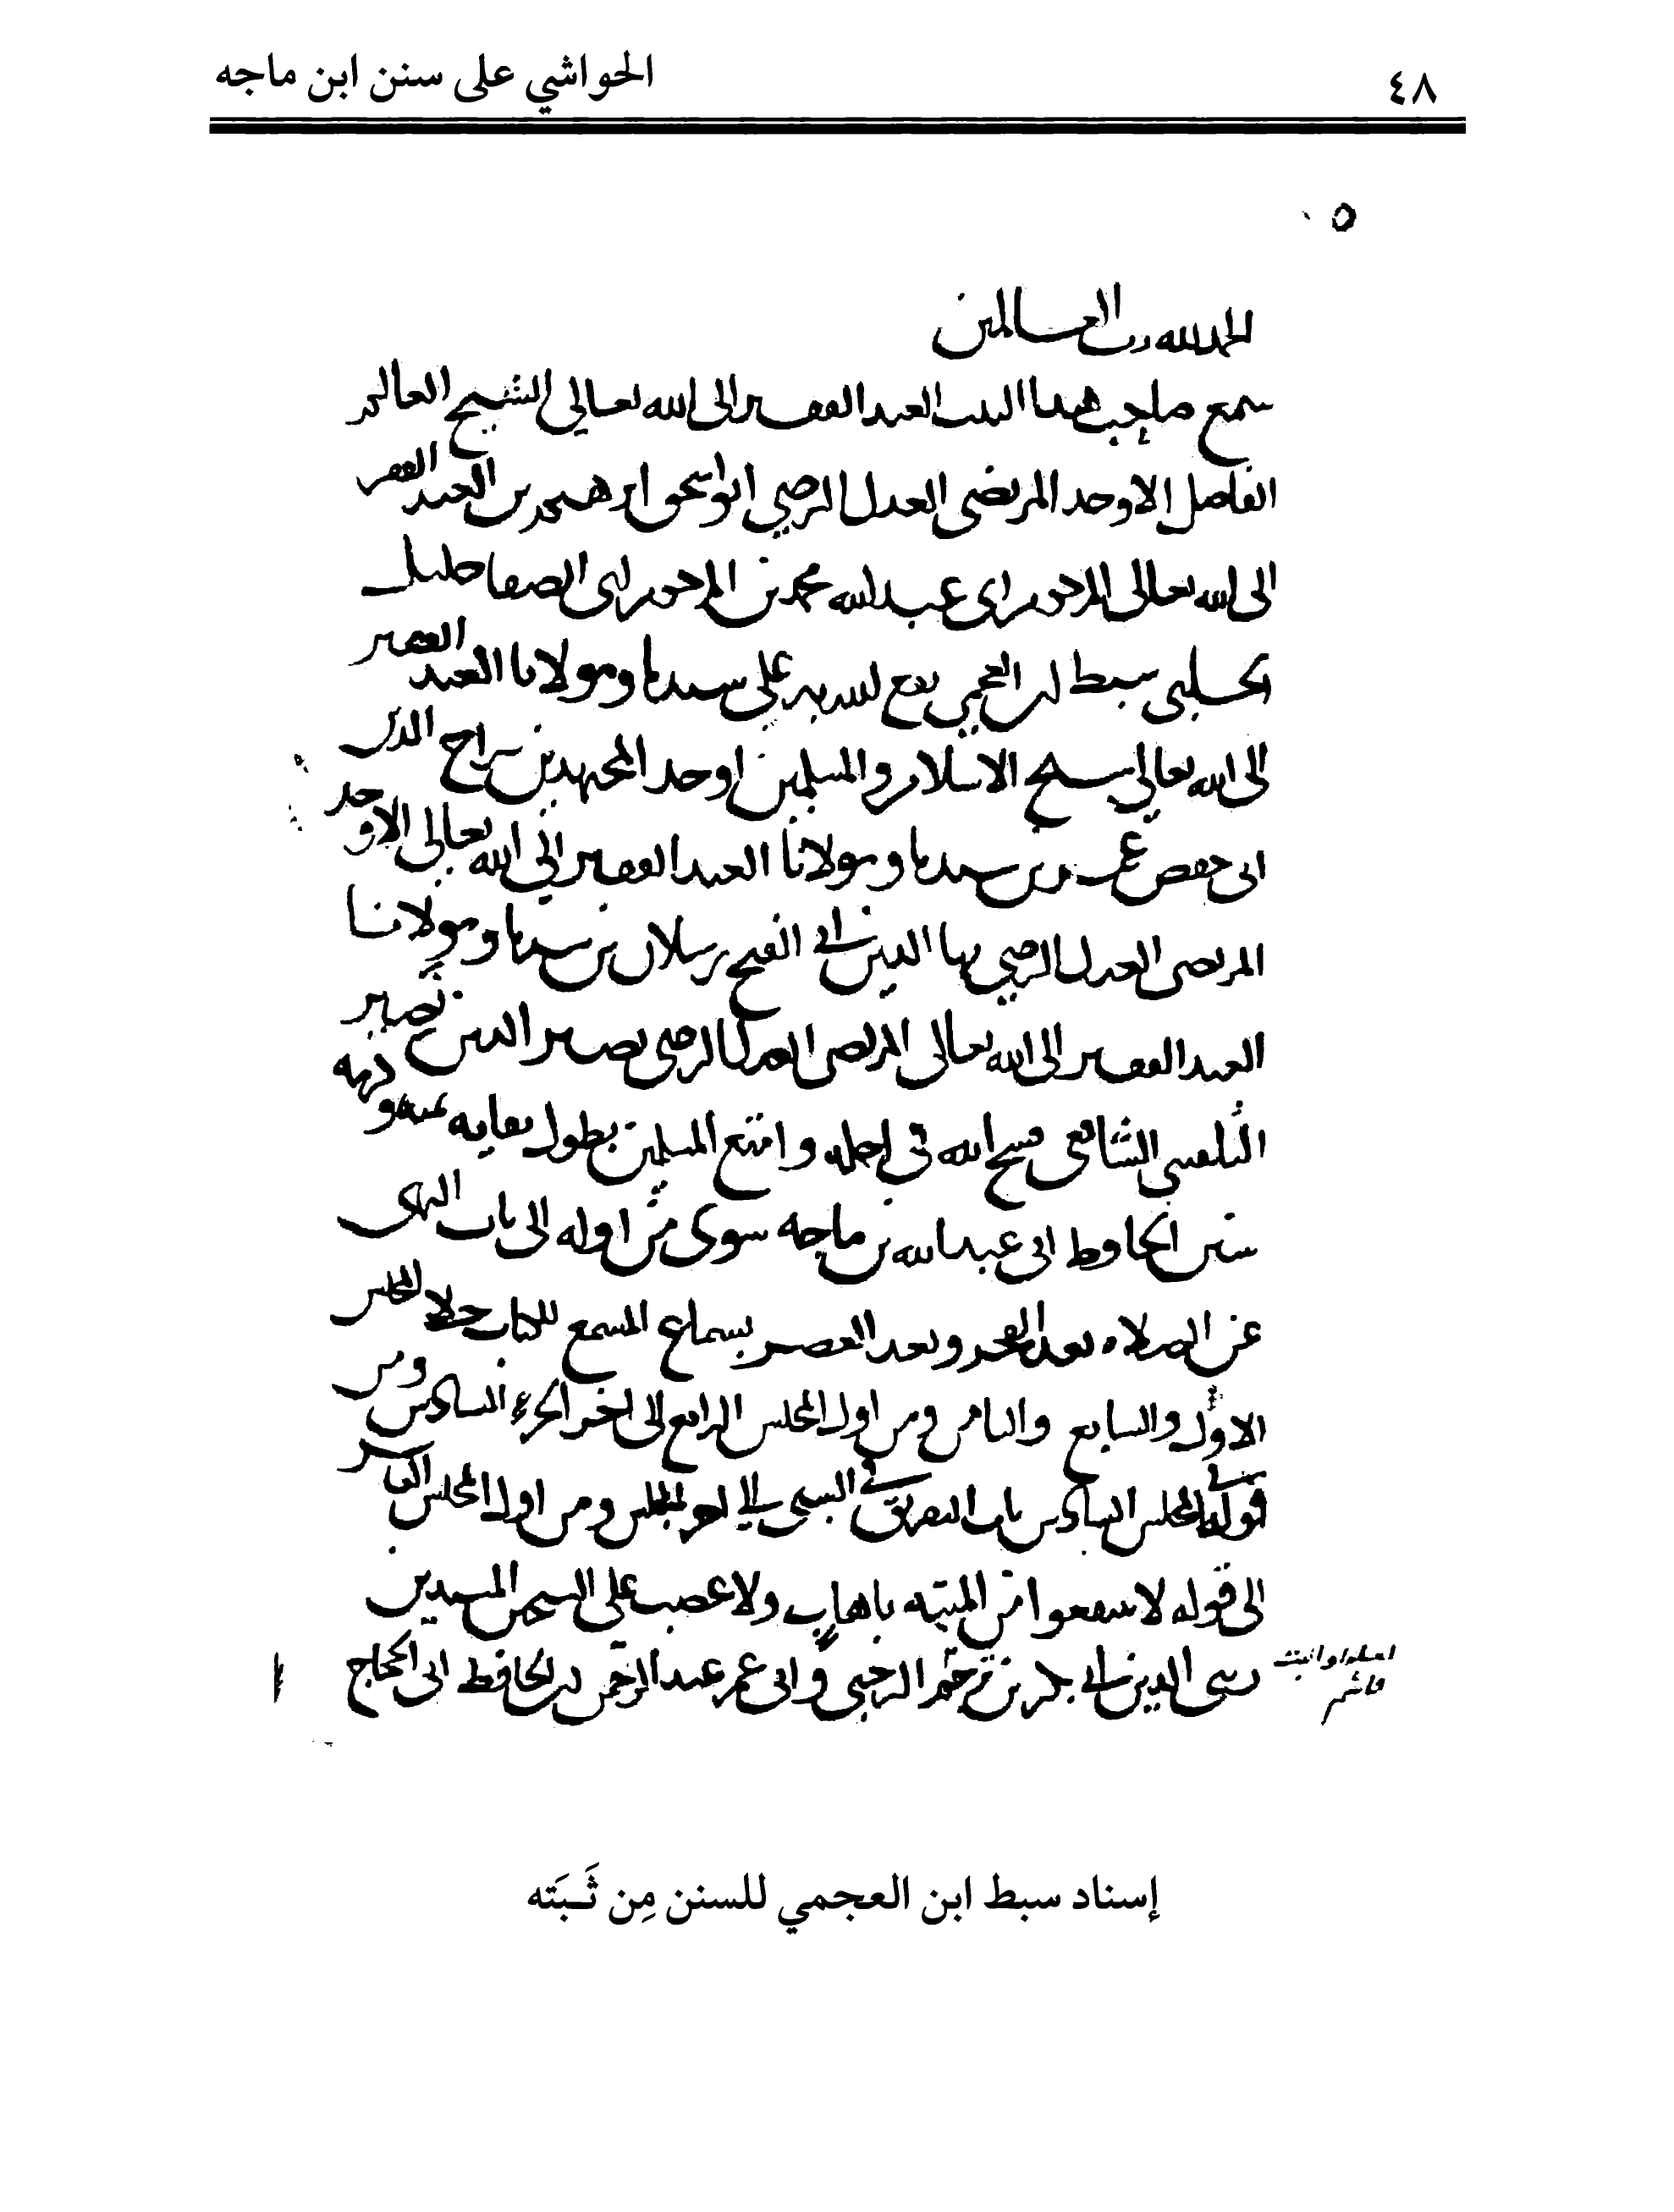 ٤٨
الحواشي على سنن ابن ماجه
٥
الحمد لله رب العالمين
سمع صاحب هدا الثبت العبد الفقير الى الله تعالى الشيخ العالم
الفاضل الاوحد المرتضى العدل الرضي ابو اسحق ابرهيم بن العبد الفقير
الى الله تعالى المرحوم ابى عبد الله محمد بن المرحوم ابى الصفا خليل
الحلبي سبط ابن العجمي نفع الله به على سيدنا ومولانا العبد الفقير
الى الله تعالى شيخ الاسلام والمسلمين اوحد المجتهدين سراج الدين
ابى حفص عمر بن سيدنا ومولانا العبد الفقير الى الله تعالى الاوحد
المرتضى العدل الرضي بها الدين ابي الفتح رسلان بن سيدنا ومولانا
العبد الفقير الى الله تعالى المرتضى العدل الرضى نصير الدين نصير
البلقينى الشافعى فسح الله فى اجله وامتع المسلمين بطول بقايه
سنن الحافظ ابى عبد الله بن ماجه سوى من اوله الى باب النهى
عن الصلاه بعد الفجر وبعد العصر بسماع المسمع للكتاب خلا المجلس
الاول والسابع والثامن ومن اول المجلس الرابع الى اخر الجزء السادس ومن
قوله فى المجلس السادس باب التفريق فى السبى الى اخر المجلس ومن اول المجلس العاشر
الى قوله لا تنتفعوا من الميته باهاب ولا عصب على الشيخين المسندين
رضى الدين ابي بكر بن قاسم الرحبي وابى عمر عبد الرحمن بن الحافظ ابى الحجاج
قاسم
إسناد سبط ابن العجمي للسنن مِن ثَـبَته